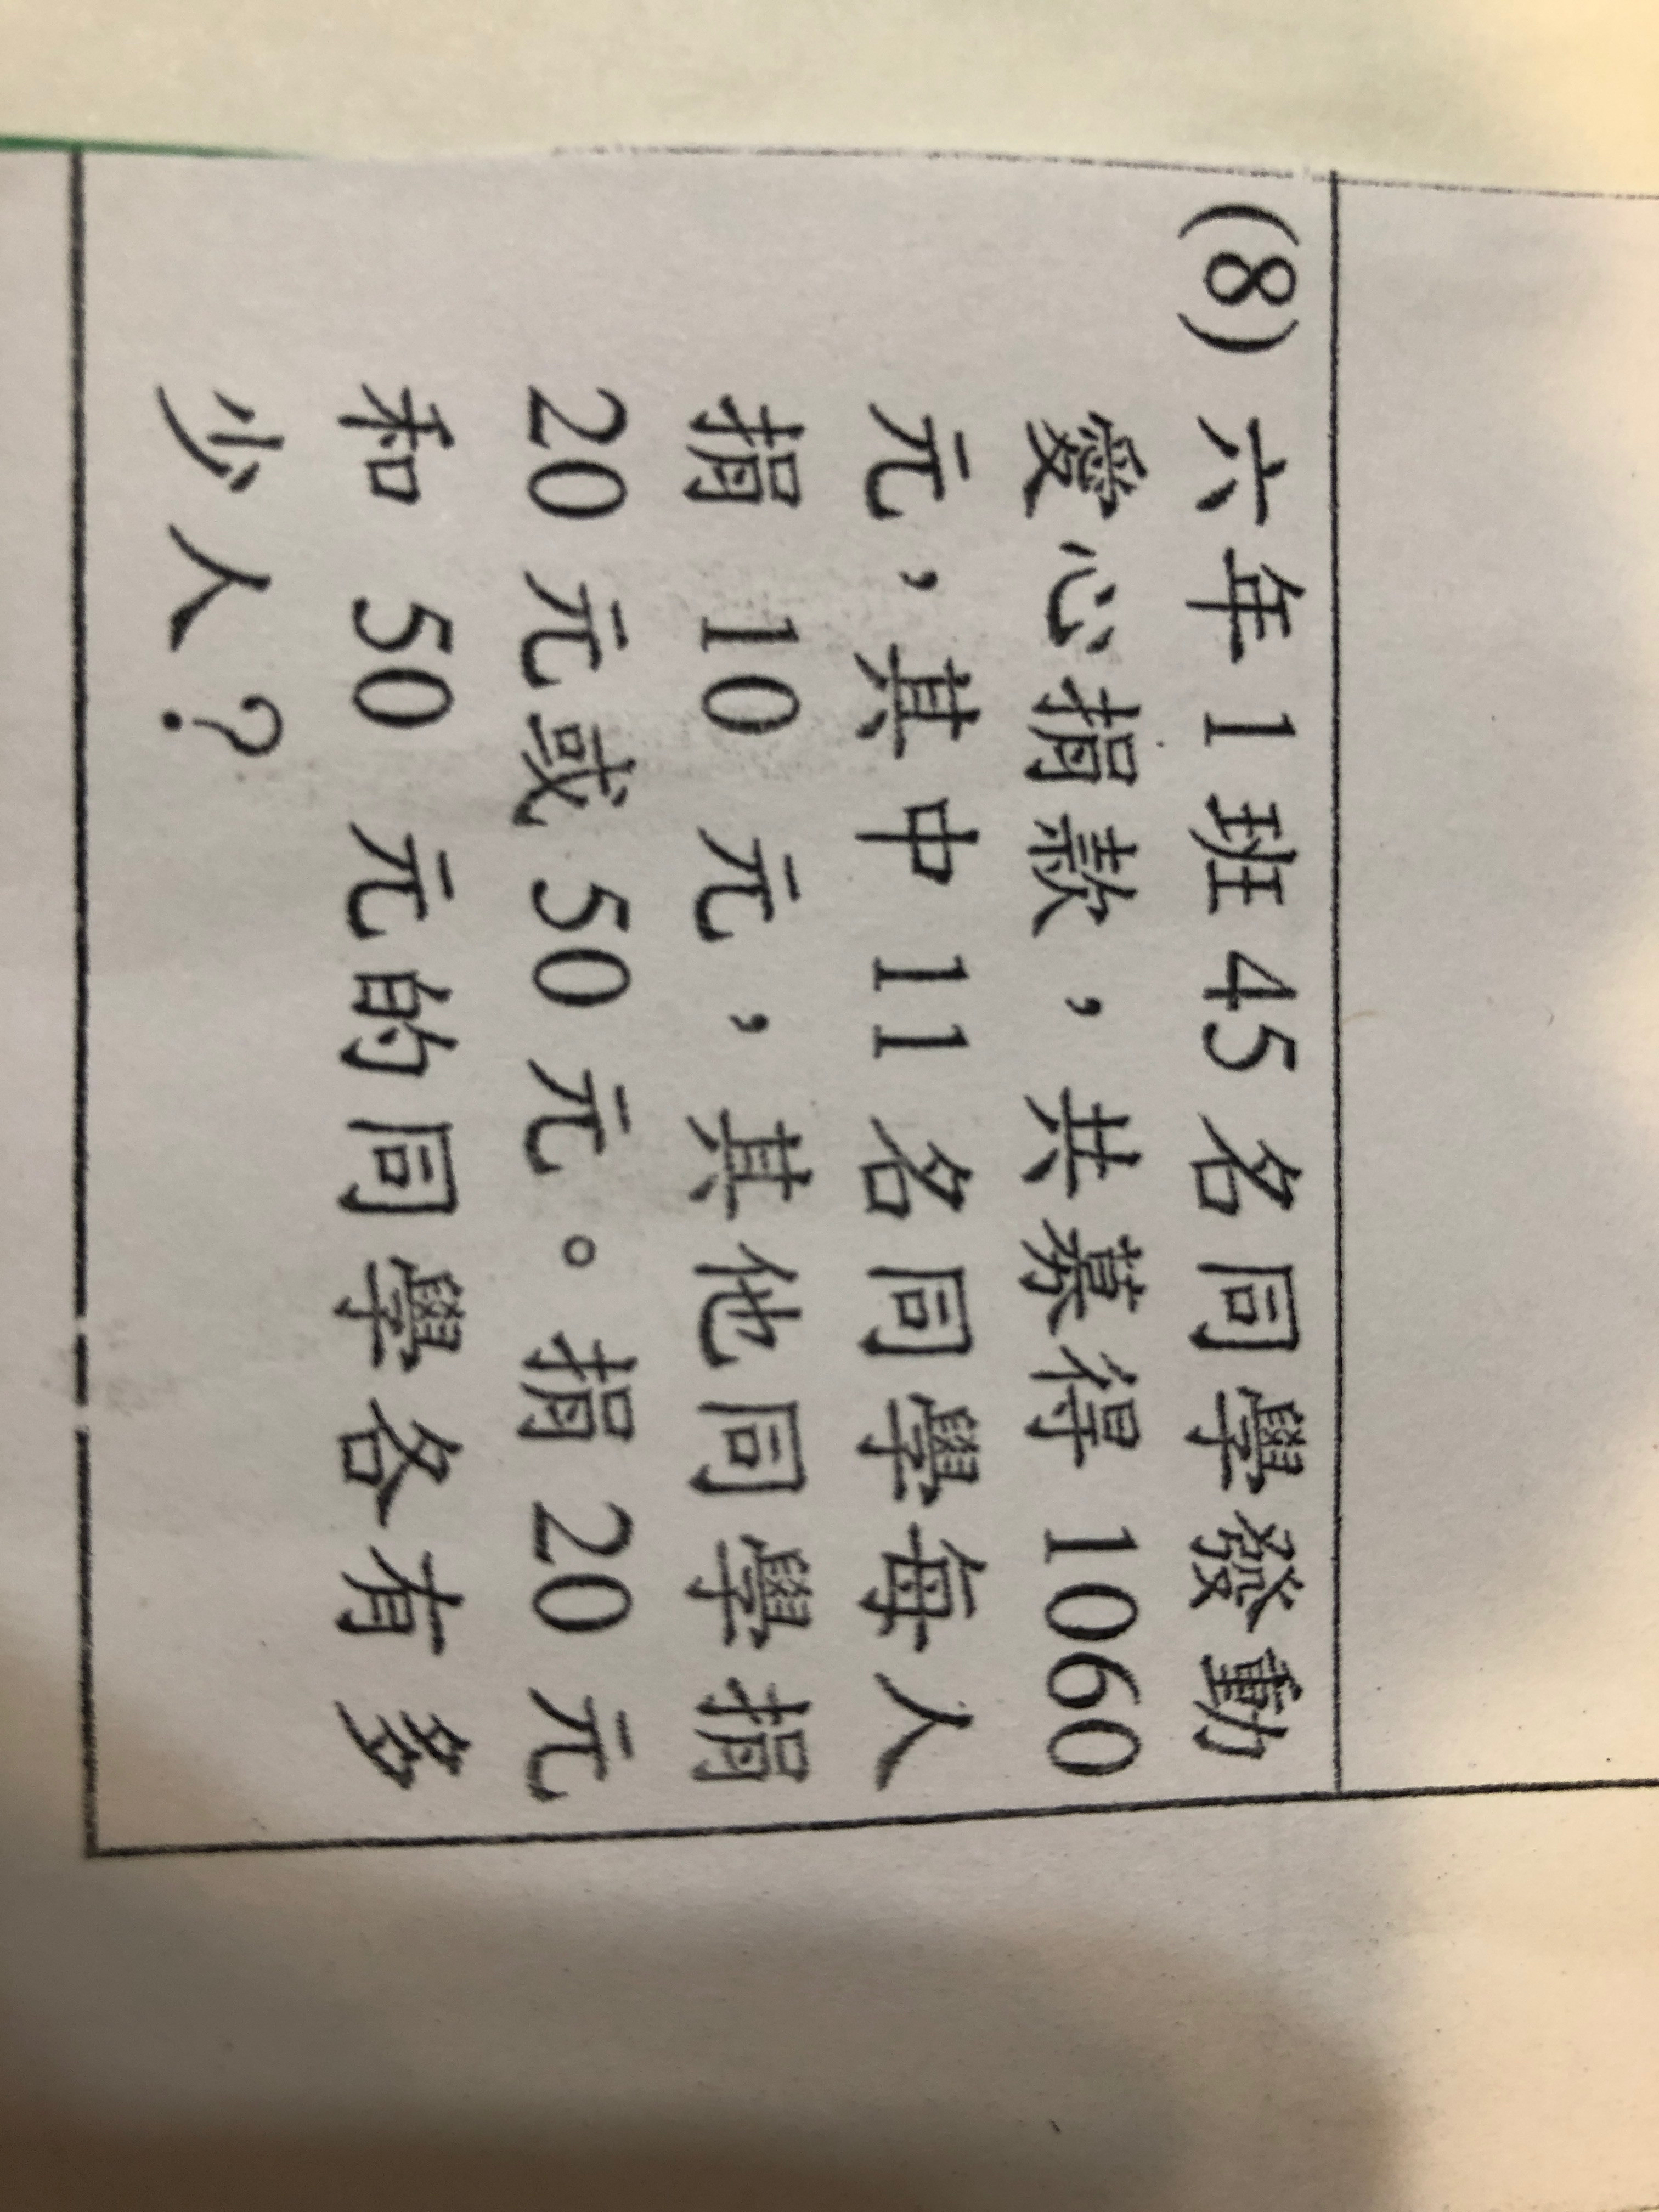 (8) 六年1班45名同學發動
愛心捐款，共募得 1060
元，其中 11 名同學每人
捐 10 元，其他同學捐
20 元或 50 元。捐 20 元
和 50 元的同學各有多
少人？